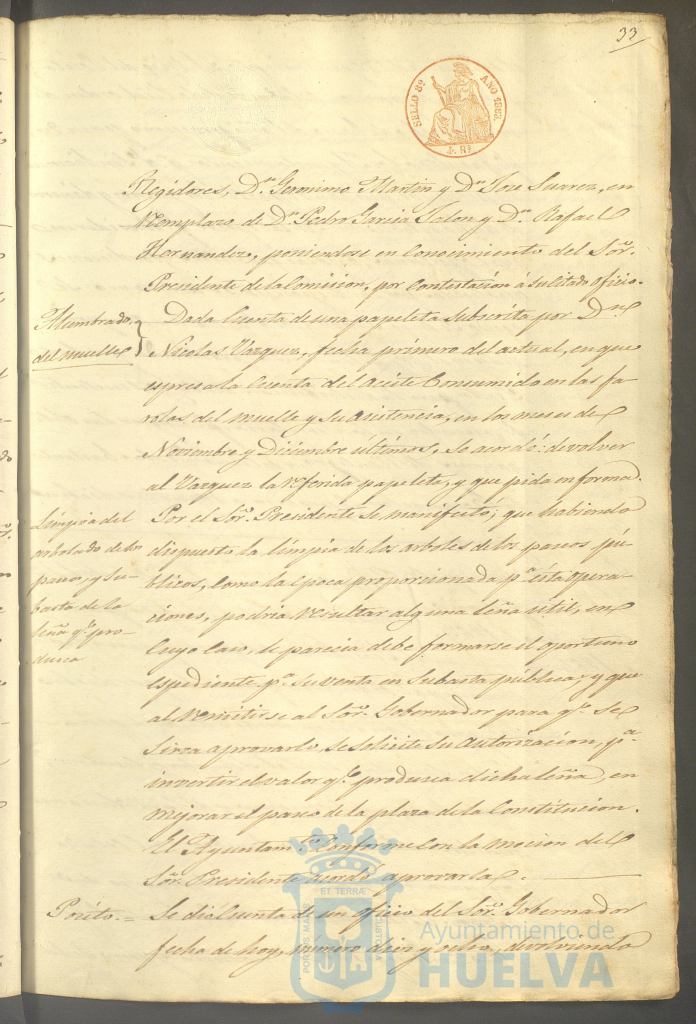 33
SELLO 8º AÑO 1862.
4 Rs
Regidores, Dn. Geronimo Martin y Dn. Jose Suarez, en
reemplazo de Dn. Pedro Garcia Telon y Dn. Rafael
Hernandez, poniendose en conocimiento del Sor.
Presidente de la Comision, por contestacion á su citado oficio.
Alumbrado
del muelle
Dada cuenta de una papeleta subscrita por Dn
Nicolas Vazquez, fecha primero del actual, en que
espresa la cuenta del aceite consumido en las fa
rolas del muelle y su asistencia, en los meses de
Noviembre y Diciembre últimos, se acordó: devolver
al Vazquez la referida papeleta, y que pida en forma.
Limpia del
arbolado de los
paseos, y su-
basta de la
leña qe. pro-
duzca
Por el Sor. Presidente se manifestó; que habiendo
dispuesto la limpia de los arboles de los paseos pú-
blicos, como la época proporcionada pa. esta opera-
ciones, podria resultar alguna leña útil, en
cuyo caso, le parecia debe formarse el oportuno
espediente pa. su venta en subasta pública; y que
al remitirse al Sor. Gobernador para qe. se
sirva aprovarlo, se solicite su autorizacion, pa.
invertir el valor qe. produzca dicha leña, en
mejorar el paseo de la plaza de la Constitucion.
El Ayuntamto. conforme con la mocion del
Sor. Presidente acordó aprovarla.
Posito. =
Se dió cuenta de un oficio del Sor. Gobernador
fecha de hoy, numero diez y ocho, devolviendo
PORTUS MARIS ET TERRÆ CUSTODIA
Ayuntamiento de
HUELVA